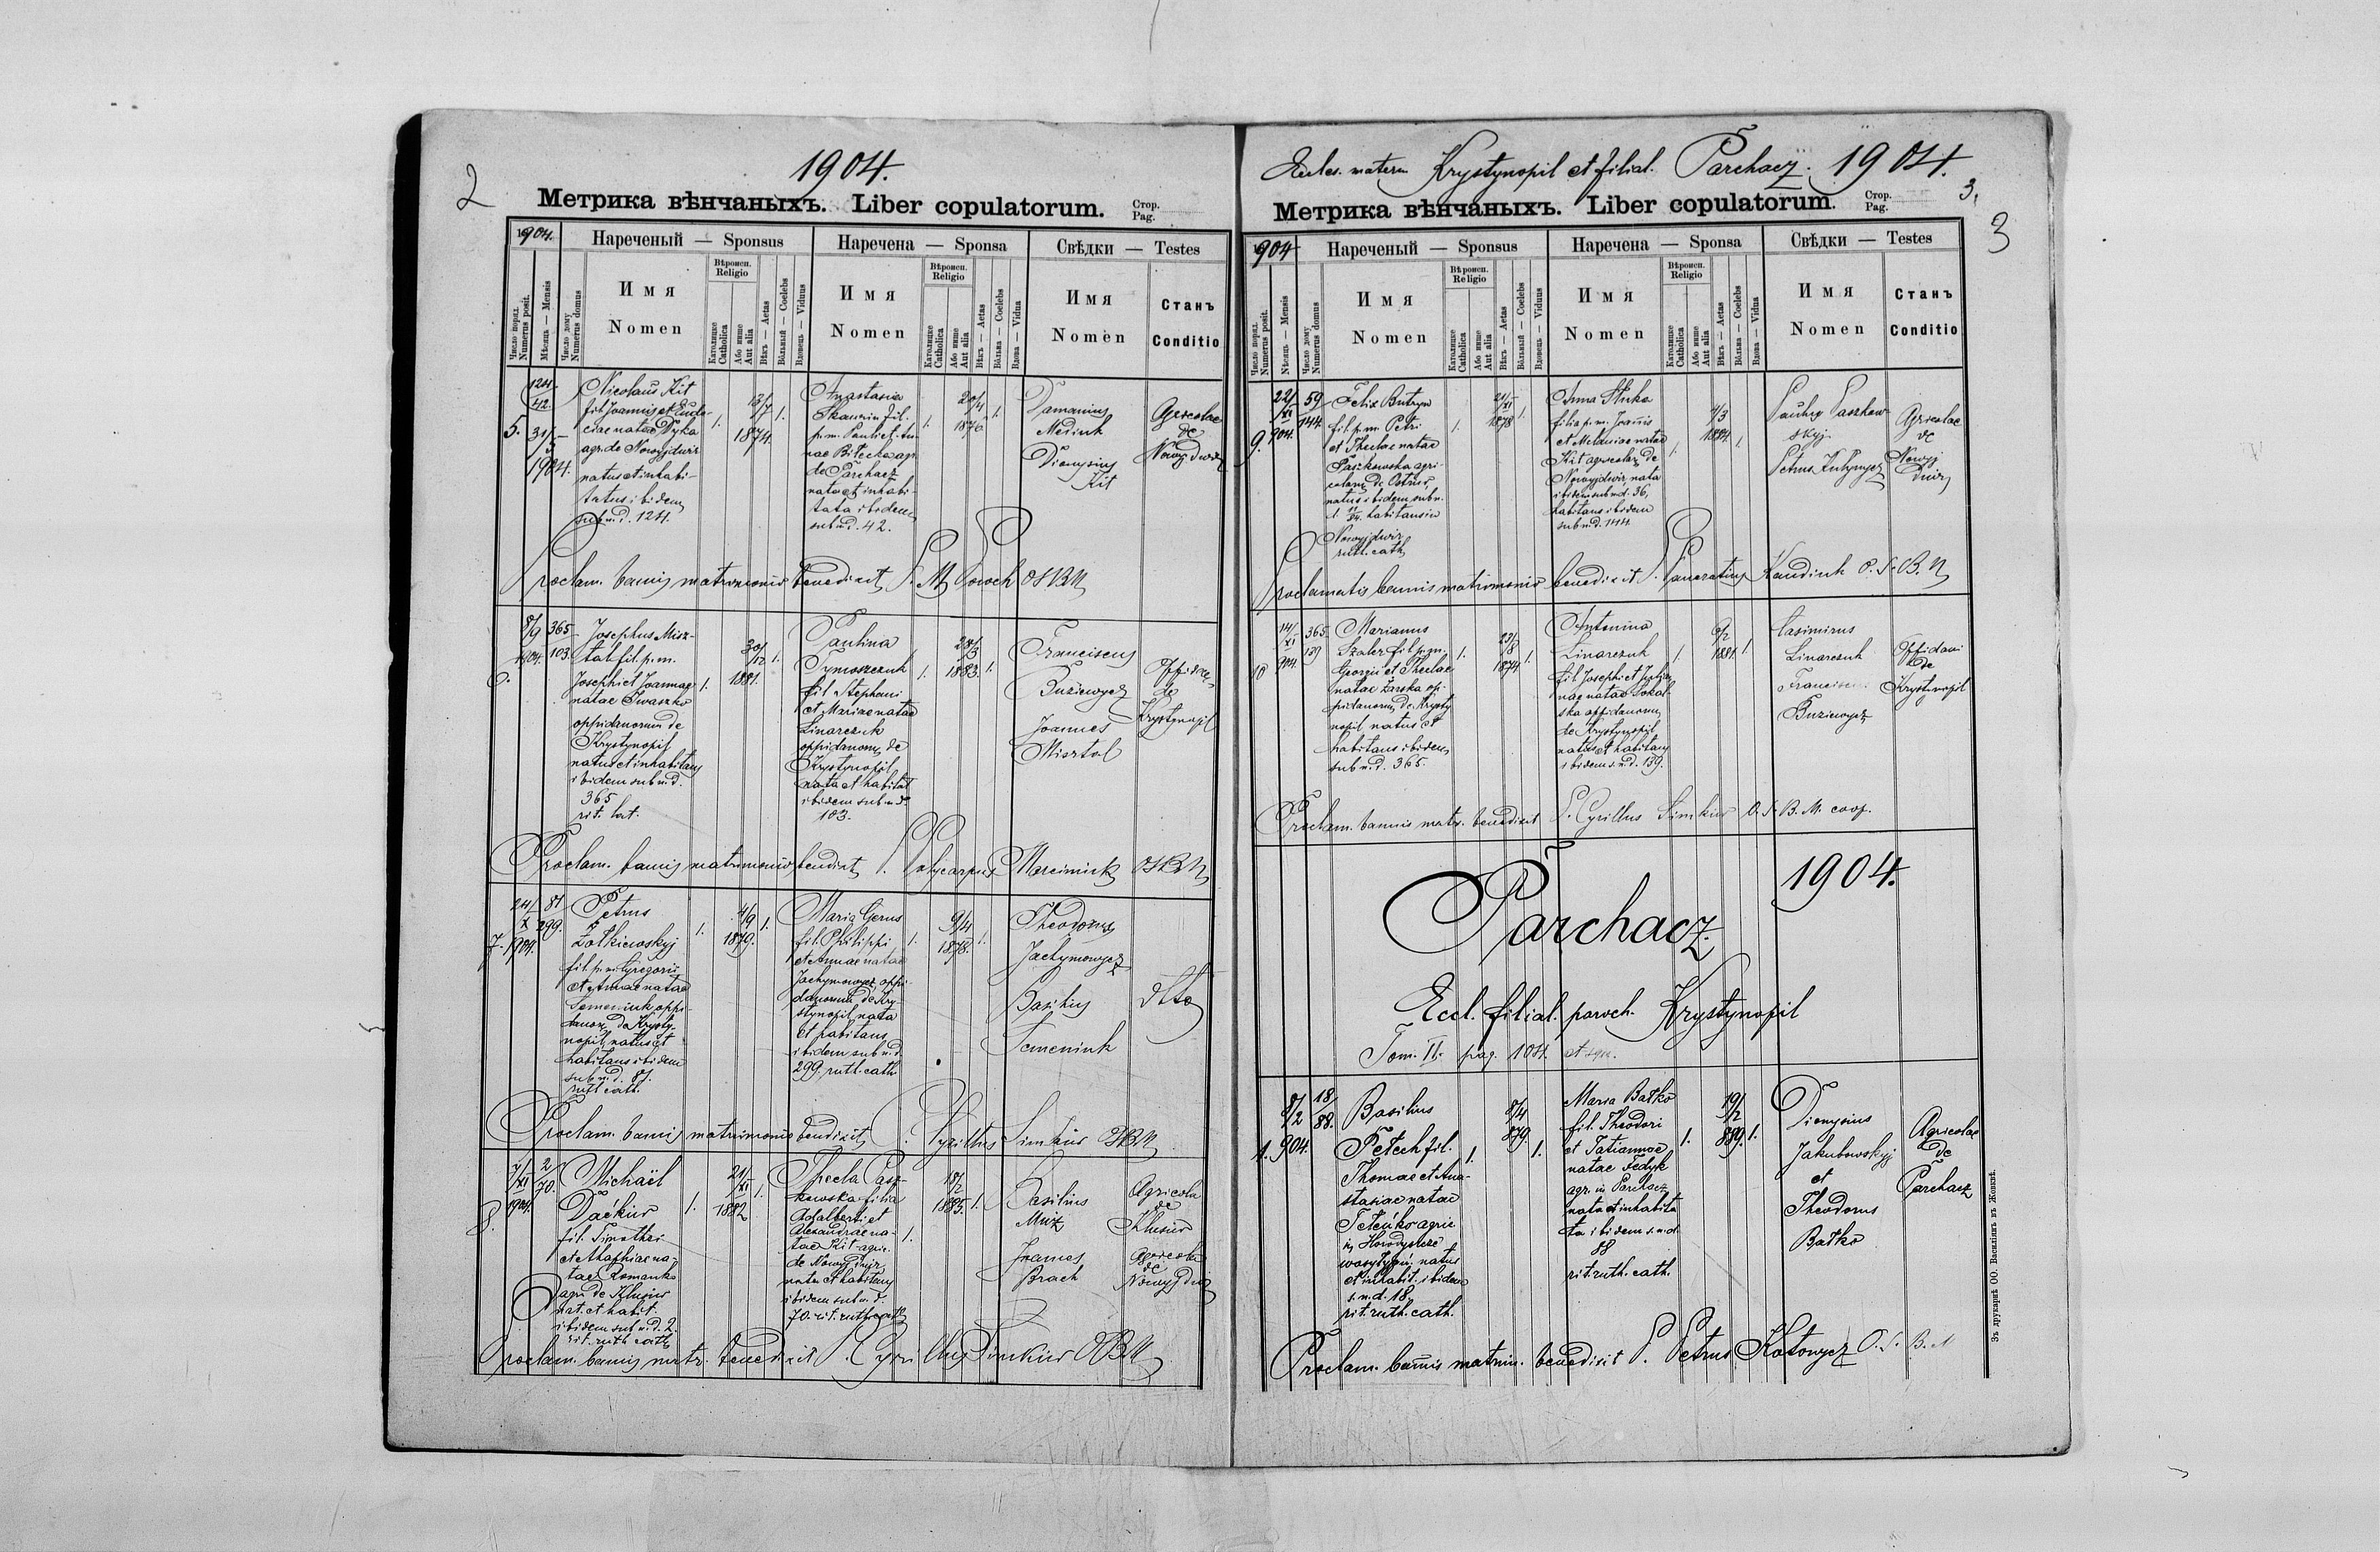 2
1904.
Метрика вѣнчаныхъ. Liber copulatorum. Стор. Pag.
1904. Нареченый — Sponsus Наречена — Sponsa Свѣдки — Testes
Число поряд. Numerus posit.
Мѣсяць — Mensis
Число дому Numerus domus
Имя Nomen
Вѣроисп. Religio
Католицке Catholica
Або инше Aut alia
Вѣкъ — Aetas
Вôльный — Coelebs
Вдовець — Viduus
Имя Nomen
Вѣроисп. Religio
Католицке Catholica
Або инше Aut alia
Вѣкъ — Aetas
Вôльна — Coelebs
Вдова — Vidua
Имя Nomen
Станъ Conditio
5.
31/5
1904.
124/42.
Nicolaus Kit
fil. Joannis et Eudo-
ciae natae Dyka
agr. de Nowyjdwir
natus et inhabi-
tatus ibidem
sub n.d. 124.
1.
13/7
1874
1.
Anastasia
fil.
p.m. Pauli et An-
nae Bilecka agr.
de Parchacz
nata et inhabi-
tata ibidem
sub n.d. 42.
1.
1876
1.
Damianus
Mediuk
Dionysius
Kit
Agricolae
de
Nowyjdwir
Proclam. bannis matrimonio benedixit P. M. OSBM
8/9
1904.
365
103.
Josephus Misz-
tal fil. p.m.
Josephi et Joannae
natae Iwaszko
oppidanorum de
Krystynopil
natus et inhabitans
ibidem sub n.d.
365
rit. lat.
1.
30/12
1881.
1.
Paulina
Tymoszczuk
fil. Stephani
et Mariae natae
Linarczuk
oppidanorum de
Krystynopil
nata et habitat
ibidem sub n.d.
103.
1.
28/3
1883.
1.
Franciscus
Buziewycz
Joannes
Misztal
Oppidani
de
Krystynopil
Proclam. bannis matrimonio benedixit P. Polycarpus Marciniuk OSBM
7.
24/X
1904.
81
299.
Petrus
Żółkiewskyj
fil. p.m. Gregorii
et Annae natae
Semeniuk oppi-
danor. de Krysty-
nopil, natus et
habitans ibidem
sub n.d. 81.
ruth. cath.
1.
4/9
1879.
1.
Maria Gerus
fil. Philippi
et Annae natae
Jachymowycz oppi-
danorum de Kry-
stynopil nata
et habitans
ibidem sub n.d.
299. ruth. cath.
1.
9/4
1878.
1.
Theodorus
Jachymowycz
Basilius
Semeniuk
dtto
Proclam. bannis matrimonio benedixit P. Cyrillus Simkiw OSBM
8.
7/XI
1904.
2/70.
Michaël
Daćkiw
fil. Timothei
et Agaphiae na-
tae Romanko
agr. de Klusiw
nat. et habit.
ibidem sub n.d. 2.
rit. ruth. cath.
1.
21/XI
1882
1.
Thecla Pasz-
kowska filia
Adalberti et
Alexandrae na-
tae Kit agr.
de Nowyjdwir,
nata et habitans
ibidem sub n.d.
70. rit. ruth. cath.
1.
1885.
1.
Basilius
Muz
Joannes
Brach
Agricola
de
Klusiw
Agricola
de
Nowyjdwir
Proclam. bannis matr. benedixit P. Cyrillus Simkiw OSBM
Eccles. matern. Krystynopil et filial. Parchacz. 1904.
3.
3
Метрика вѣнчаныхъ. Liber copulatorum. Стор. Pag.
1904 Нареченый — Sponsus Наречена — Sponsa Свѣдки — Testes
Число поряд. Numerus posit.
Мѣсяць — Mensis
Число дому Numerus domus
Имя Nomen
Вѣроисп. Religio
Католицке Catholica
Або инше Aut alia
Вѣкъ — Aetas
Вôльный — Coelebs
Вдовець — Viduus
Имя Nomen
Вѣроисп. Religio
Католицке Catholica
Або инше Aut alia
Вѣкъ — Aetas
Вôльна — Coelebs
Вдова — Vidua
Имя Nomen
Станъ Conditio
9.
22/XI
904.
59
144
Felix Butryn
fil. p.m. Petri
et Theclae natae
Paszkowska agri-
colarum de Ostriw,
natus ibidem sub n.
d. habitans in
Nowyjdwir
ruth. cath.
1.
21/XI
1878
1.
Anna Hluka
filia p.m. Joannis
et Melaniae natae
Kit agricolar. de
Nowyjdwir, nata
ibidem sub n.d. 36,
habitans ibidem
sub n.d. 144.
1.
4/3
1884
1.
Paszkow-
skyj
Petrus
Agricolae
de
Nowyj
dwir
Proclamatis bannis matrimonio benedixit P. Pancratius Kandiuk O.S.B.M
10
14/XI
904.
365
139
Marianus
Szaler fil. p.m.
Georgii et Theclae
natae Żarska op-
pidanorum de Krysty-
nopil natus et
habitans ibidem
sub n.d. 365.
1.
23/8
1874
1.
Antonina
Linarczuk
fil. Josephi et
nae natae Sokal-
ska oppidanorum
de Krystynopil
natus et habitans
ibidem s.n.d. 139.
1
1881.
1
Casimirus
Linarczuk
Franciscus
Buziewycz
Oppidani
de
Krystynopil
Proclam. bannis matr. benedixit P. Cyrillus Simkiw O.S.B.M. coop.
Parchacz. 1904.
Eccl. filial. paroch. Krystynopil
Tom. II. pag. 104. et sqn.
1.
8/2
904.
18/88.
Basilius
Petech fil.
Thomae et Ana-
stasiae natae
Teteńko agric
in Horodyszcze
wasylywi natus
et inhabit. ibidem
s.n.d. 18,
rit. ruth. cath.
1.
8/4
879.
1.
Maria Bałko
fil. Theodori
et Tatiannae
natae Fedyk
agr. in Parchacz
nata et inhabita
ta ibidem s.n.d.
88
rit. ruth. cath.
1.
19/2
889.
1.
Dionysius
Jakubowskyj
et
Theodorus
Bałko
Agricolae
de
Parchacz
Proclam. bannis matrim. benedixit P. Petrus Kotowycz O.S.B.M
Зъ друкарнѣ ОО. Василіянъ въ Жовквѣ.